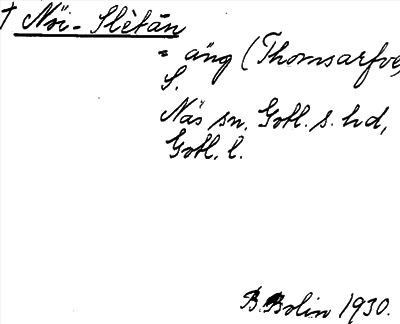 † Nöi-Slètän
= äng (Thomsarfve,
S.
Näs sn. Gotl. s. hd,
Gotl. l.
B. Bolin 1930.